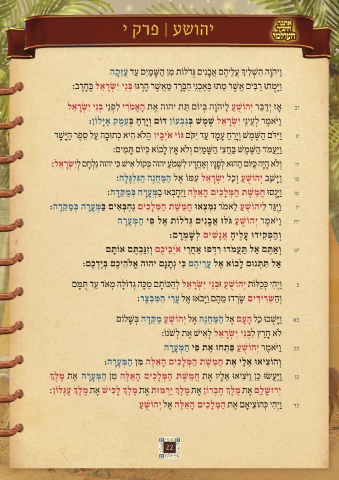 יהושע | פרק י
וַיהוָה הִשְׁלִיךְ עֲלֵיהֶם אֲבָנִים גְּדֹלוֹת מִן הַשָּׁמַיִם עַד עֲזֵקָה
וַיָּמֻתוּ רַבִּים אֲשֶׁר מֵתוּ בְּאַבְנֵי הַבָּרָד מֵאֲשֶׁר הָרְגוּ בְּנֵי יִשְׂרָאֵל בֶּחָרֶב:
יב אָז יְדַבֵּר יְהוֹשֻׁעַ לַיהוָה בְּיוֹם תֵּת יהוה אֶת הָאֱמֹרִי לִפְנֵי בְּנֵי יִשְׂרָאֵל
וַיֹּאמֶר לְעֵינֵי יִשְׂרָאֵל שֶׁמֶשׁ בְּגִבְעוֹן דּוֹם וְיָרֵחַ בְּעֵמֶק אַיָּלוֹן:
יג וַיִּדֹּם הַשֶּׁמֶשׁ וְיָרֵחַ עָמָד עַד יִקֹּם גּוֹי אֹיְבָיו הֲלֹא הִיא כְתוּבָה עַל סֵפֶר הַיָּשָׁר
וַיַּעֲמֹד הַשֶּׁמֶשׁ בַּחֲצִי הַשָּׁמַיִם וְלֹא אָץ לָבוֹא כְּיוֹם תָּמִים:
יד וְלֹא הָיָה כַּיּוֹם הַהוּא לְפָנָיו וְאַחֲרָיו לִשְׁמֹעַ יהוה בְּקוֹל אִישׁ כִּי יהוה נִלְחָם לְיִשְׂרָאֵל:
טו וַיָּשָׁב יְהוֹשֻׁעַ וְכָל יִשְׂרָאֵל עִמּוֹ אֶל הַמַּחֲנֶה הַגִּלְגָּלָה:
טז וַיָּנֻסוּ חֲמֵשֶׁת הַמְּלָכִים הָאֵלֶּה וַיֵּחָבְאוּ בַמְּעָרָה בְּמַקֵּדָה:
יז וַיֻּגַּד לִיהוֹשֻׁעַ לֵאמֹר נִמְצְאוּ חֲמֵשֶׁת הַמְּלָכִים נֶחְבְּאִים בַּמְּעָרָה בְּמַקֵּדָה:
יח וַיֹּאמֶר יְהוֹשֻׁעַ גֹּלּוּ אֲבָנִים גְּדֹלוֹת אֶל פִּי הַמְּעָרָה
וְהַפְקִידוּ עָלֶיהָ אֲנָשִׁים לְשָׁמְרָם:
יט וְאַתֶּם אַל תַּעֲמֹדוּ רִדְפוּ אַחֲרֵי אֹיְבֵיכֶם וְזִנַּבְתֶּם אוֹתָם
אַל תִּתְּנוּם לָבוֹא אֶל עָרֵיהֶם כִּי נְתָנָם יהוה אֱלֹהֵיכֶם בְּיֶדְכֶם:
כ וַיְהִי כְּכַלּוֹת יְהוֹשֻׁעַ וּבְנֵי יִשְׂרָאֵל לְהַכּוֹתָם מַכָּה גְּדוֹלָה מְאֹד עַד תֻּמָּם
וְהַשְּׂרִידִים שָׂרְדוּ מֵהֶם וַיָּבֹאוּ אֶל עָרֵי הַמִּבְצָר:
כא וַיָּשֻׁבוּ כָל הָעָם אֶל הַמַּחֲנֶה אֶל יְהוֹשֻׁעַ מַקֵּדָה בְּשָׁלוֹם
לֹא חָרַץ לִבְנֵי יִשְׂרָאֵל לְאִישׁ אֶת לְשֹׁנוֹ:
כב וַיֹּאמֶר יְהוֹשֻׁעַ פִּתְחוּ אֶת פִּי הַמְּעָרָה
וְהוֹצִיאוּ אֵלַי אֶת חֲמֵשֶׁת הַמְּלָכִים הָאֵלֶּה מִן הַמְּעָרָה:
כג וַיַּעֲשׂוּ כֵן וַיֹּצִיאוּ אֵלָיו אֶת חֲמֵשֶׁת הַמְּלָכִים הָאֵלֶּה מִן הַמְּעָרָה אֵת מֶלֶךְ
יְרוּשָׁלִַם אֶת מֶלֶךְ חֶבְרוֹן אֶת מֶלֶךְ יַרְמוּת אֶת מֶלֶךְ לָכִישׁ אֶת מֶלֶךְ עֶגְלוֹן:
כד וַיְהִי כְּהוֹצִיאָם אֶת הַמְּלָכִים הָאֵלֶּה אֶל יְהוֹשֻׁעַ
22